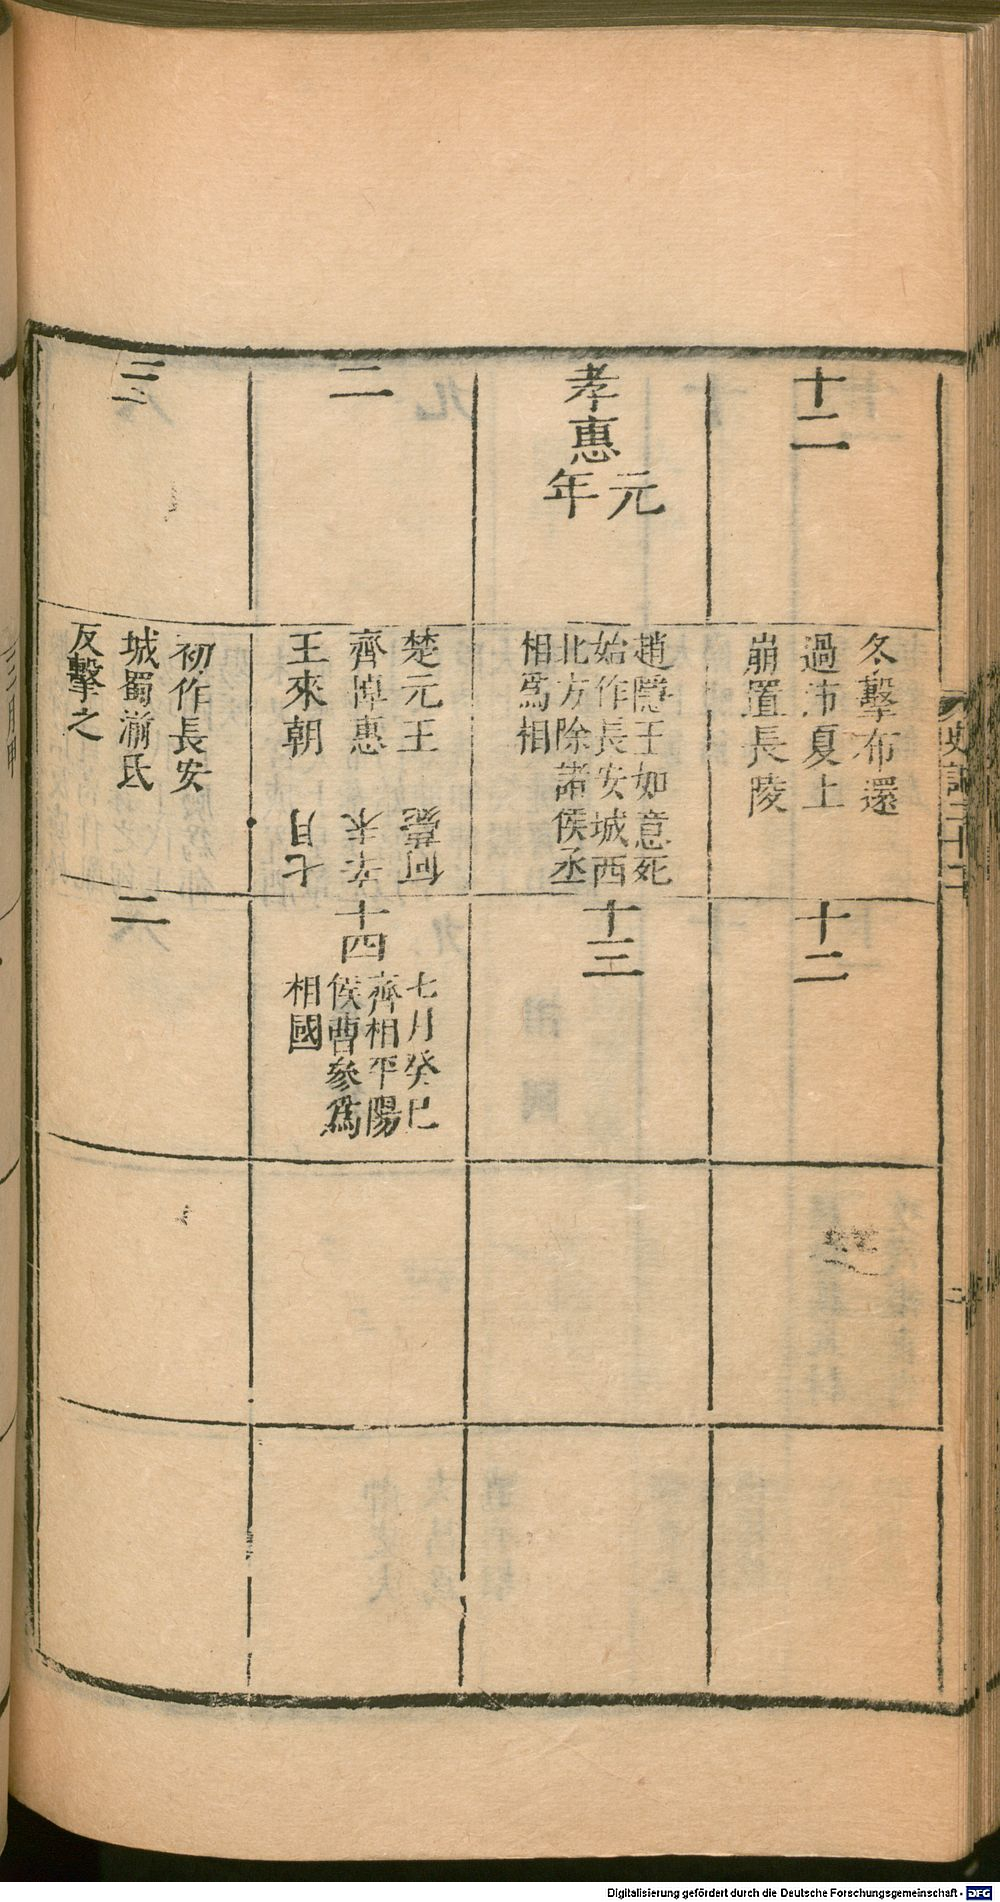 十二
冬擊布還
過沛夏上
崩置長陵
十二
孝惠
元
年
趙隱王如意死
始作長安城西
北方除諸侯丞
相爲相
十三
二
楚元王
齊悼惠
王來朝
何薨
辛未
七月
十四
七月癸巳
齊相平陽
侯曹參爲
相國
三
初作長安
城蜀湔氐
反擊之
二
史記二十二
Digitalisierung gefördert durch die Deutsche Forschungsgemeinschaft - DFG